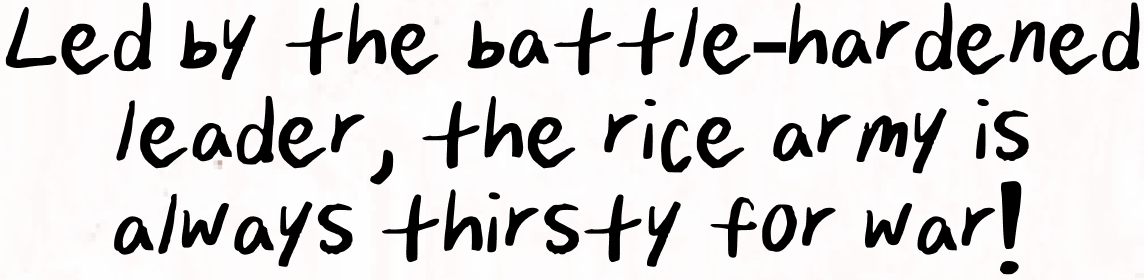 Led by the battle-hardened
leader, the rice army is
always thirsty for war!